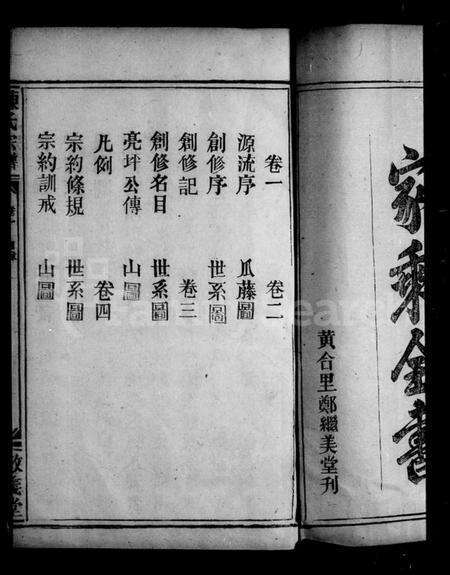 家乘全書
黃合里鄭繼美堂刊
卷一 卷二
源流序 瓜藤圖
創修序 世系圖
創修記 卷三
創修名目 世系圖
亮坪公傳 山圖
凡例 卷四
宗約條規 世系圖
宗約訓戒 山圖
氏宗譜
敦義堂